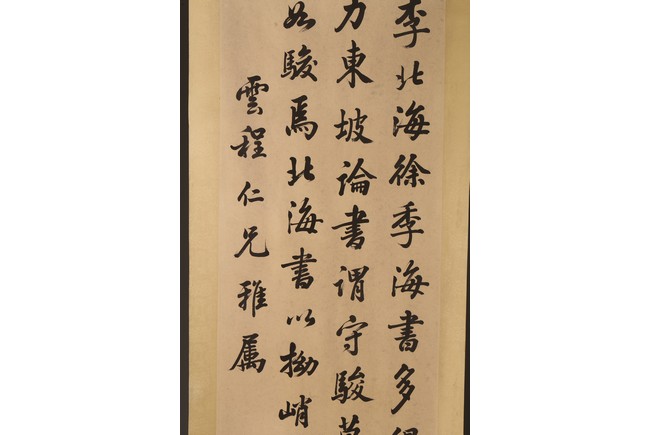 李北海徐季海書多
力東坡論書謂守駿莫
如駿焉北海書以拗峭
雲程仁兄雅属